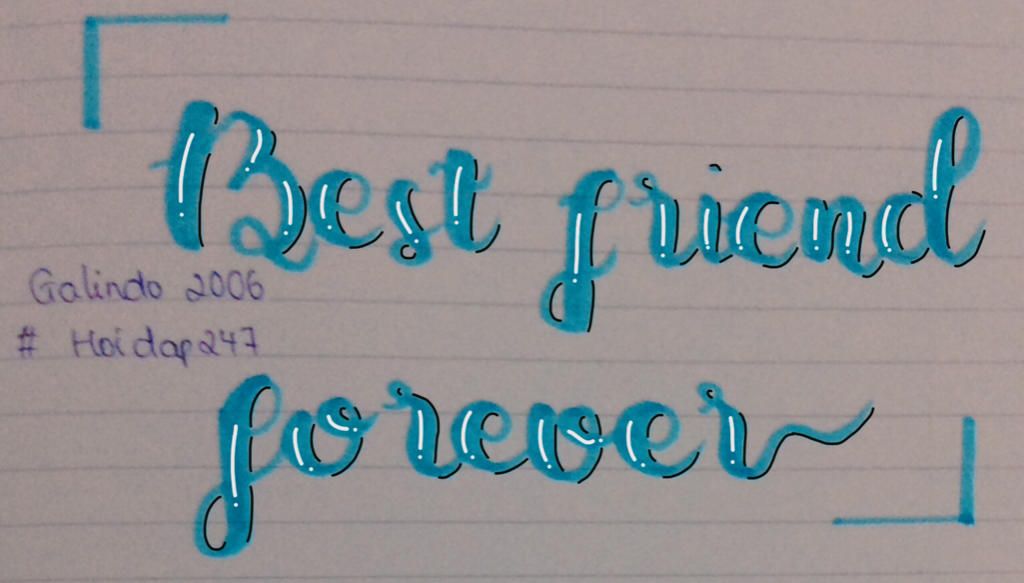 Best friend
Galindo 2006
# Hoidap247
forever